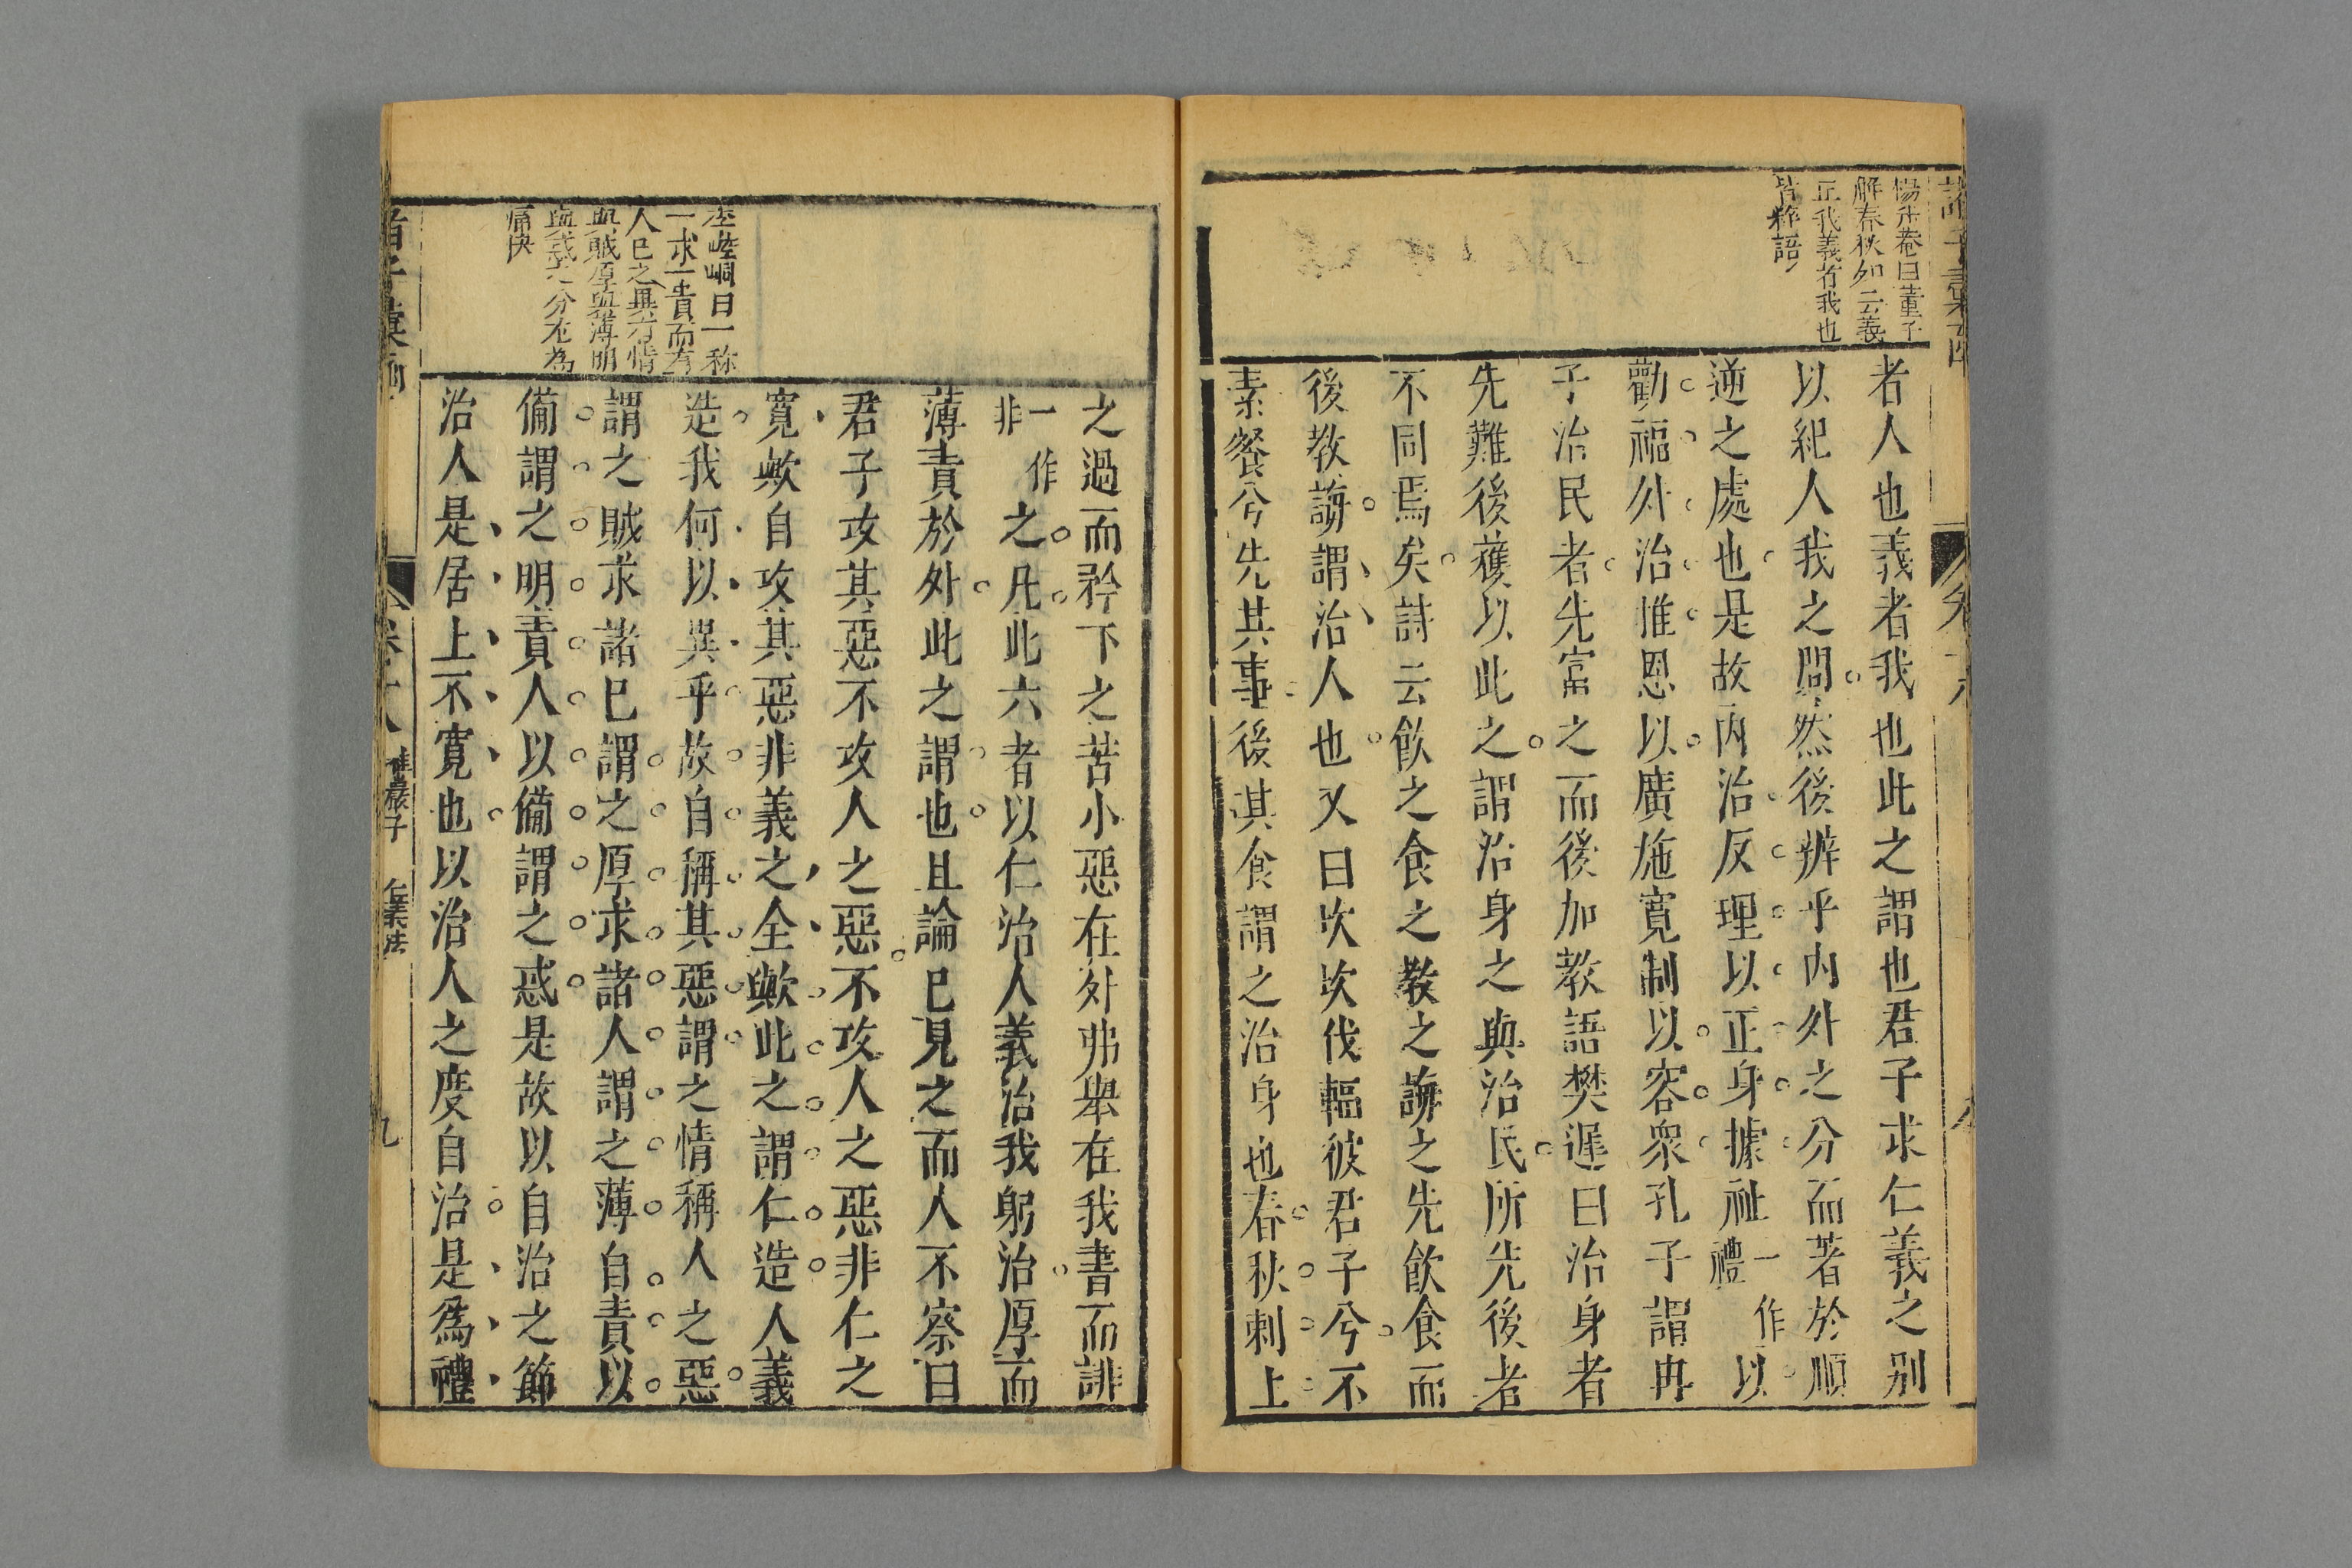 楊升菴曰董子
解春秋如云義
正我義者我也
皆粹語
者人也義者我也此之謂也君子求仁義之別
以紀人我之間然後辨乎内外之分而著於順
逆之處也是故内治反理以正身據祉一作禮以
勸福外治推恩以廣施寬制以容衆孔子謂冉
子治民者先富之而後加教語樊遲曰治身者
先難後獲以此之謂治身之與治民所先後者
不同焉矣詩云飲之食之教之誨之先飲食而
後教誨謂治人也又曰坎坎伐輻彼君子兮不
素餐兮先其事後其食謂之治身也春秋刺上
之過而矜下之苦小惡在外弗舉在我書而誹
一作非之凡此六者以仁治人義治我躬治厚而
薄責於外此之謂也且論已見之而人不察曰
君子攻其惡不攻人之惡不攻人之惡非仁之
寬歟自攻其惡非義之全歟此之謂仁造人義
造我何以異乎故自稱其惡謂之情稱人之惡
謂之賊求諸已謂之厚求諸人謂之薄自責以
備謂之明責人以備謂之惑是故以自治之節
治人是居上不寬也以治人之度自治是爲禮
李崆峒曰一称
一求一責而有
人已之異才情
與賊厚與薄明
與惑之分尤為
痛快
卷十八
桂巖子
仁義法
九